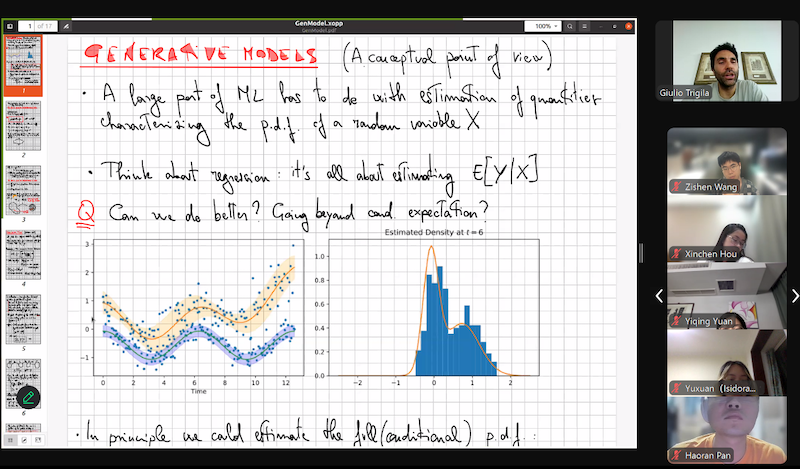 GenModel.xopp
GenModel.pdf
1 of 17
100%
GENERATIVE MODELS (A conceptual point of view)
• A large part of ML has to do with estimation of quantities
characterizing the p.d.f. of a random variable X
• Think about regression: it's all about estimating E[Y|X]
Q Can we do better? Going beyond cond expectation?
Estimated Density at t = 6
3
2
1
0
−1
0 2 4 6 8 10 12
Time
1.0
0.8
0.6
0.4
0.2
0.0
−2 −1 0 1 2
• In principle we could estimate the full (conditional) p.d.f.:
1
2
3
4
5
6
Giulio Trigila
Zishen Wang
Xinchen Hou
Yiqing Yuan
Yuxuan (Isidora...
Haoran Pan